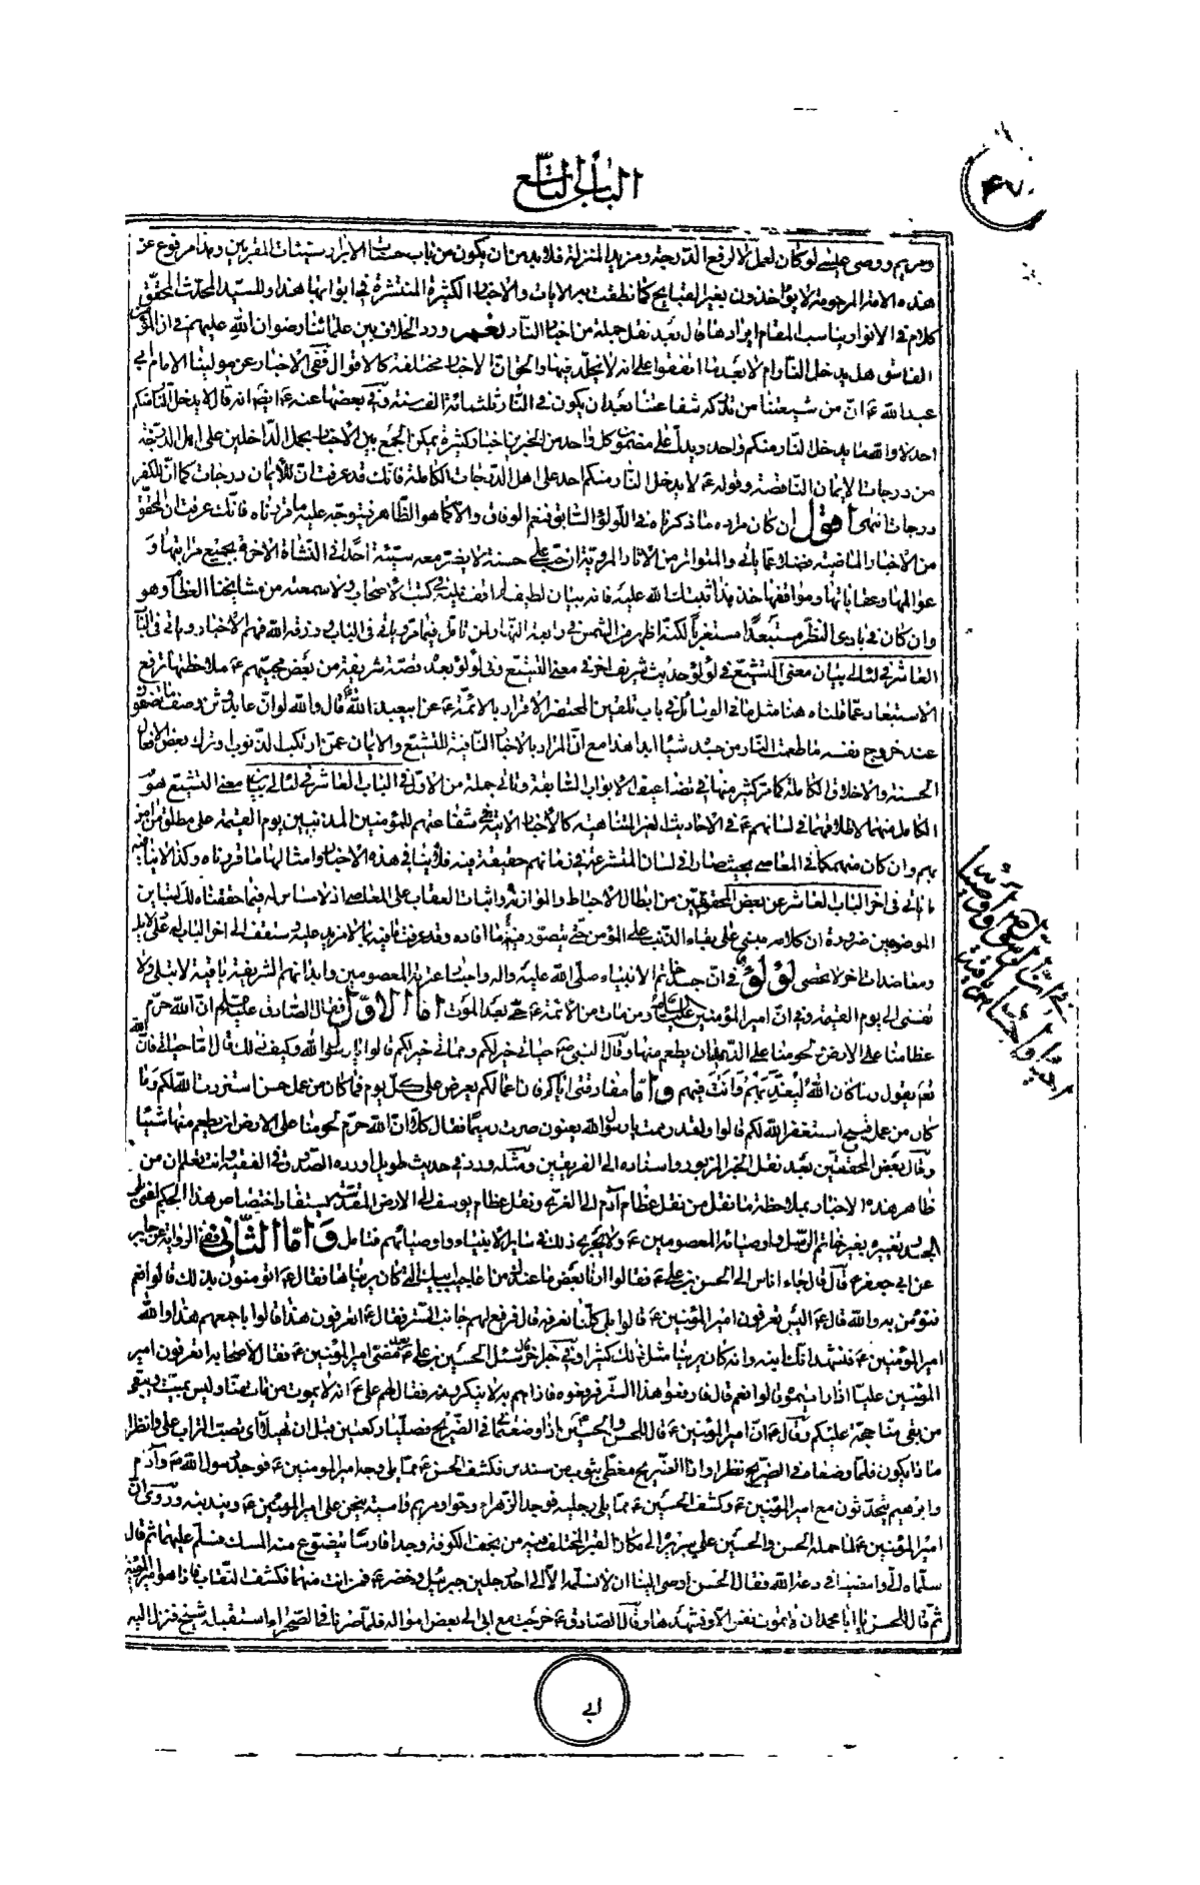 الباب التاسع
ومريم ووصى عليسے لو كان لعمل لا لرفع الدرجة ومزيد المنزلة فلا بد من ان يكون من باب حسنات الابرار سيئات المقربين وهذا مرفوع عن
هذه الامة المرحومة لا يؤاخذون بغير القبايح كما نطقت به الايات والاخبار الكثيرة المنتشرة في ابوابها هذا وللسيد المحدث المحقق
كلام في الانوار يناسب المقام ايراده قال بعد نقل جملة من اخبار النار نعم ورد الخلاف بين علمائنا رضوان الله عليهم في ان المؤمن
الفاسق هل يدخل النار ام لا بعد ما اتفقوا على انه لا يخلد فيها والحق ان الاخبار مختلفة كالاقوال ففي الاخبار عن مولينا الامام ابي
عبد الله ع ان من شيعتنا من تدركه شفاعتنا بعد ان يكون في النار ثلثمائة الف سنة وفي بعضها عنه ع ايضا انه قال لا يدخل النار منكم
احد لا والله ما يدخل النار منكم واحد ويدل على مضمون كل واحد من الخبرين اخبار كثيرة يمكن الجمع بين الاخبار بحمل الداخلين على اهل الدرجة
من درجات الايمان الناقصة وقوله ع لا يدخل النار منكم احد على اهل الدرجات الكاملة فانك قد عرفت ان للايمان درجات كما ان للكفر
دركات انتهى اقول ان كان مراده ما ذكرناه في اللؤلؤ السابق فنعم الوفاق والا كما هو الظاهر فيتوجه عليه ما قررناه فانك عرفت ان المحقق
من الاخبار الماضية فضلا عما ياتي والمتواتر من الاثار المروية ان حب علي حسنة لا يضر معه سيئة احدا في النشاة الاخرة بجميع مراتبها و
عوالمها وعقباتها ومواقفها خذ هذا ثبتك الله عليه فانه بيان لطيف لم اقف عليه في كتب الاصحاب ولا سمعته من مشايخنا العظام وهو
وان كان في بادي النظر مستبعدا مستغربا لكنه اظهر من الشمس في رابعة النهار لمن تامل فيما مر وياتي في الباب ورزقه الله فهم الاخبار وياتي في الباب
العاشر في لئالي بيان معنى التشيع في لؤلؤ حديث شريف اخر في معنى التشيع وفي لؤلؤ بعده قصة شريفة من بعض محبيهم ع ملاحظتها ترفع
الاستبعاد عما قلناه هنا مثل ما في الوسائل في باب تلقين المحتضر الاقرار بالائمة ع عن ابيعبد الله قال والله لو ان عابد وثن وصف ما تصفون
عند خروج نفسه ما طعمت النار من جسده شيئا ابدا هذا مع ان المراد بالاخبار النافية للتشيع والايمان عمن ارتكب الذنوب او ترك بعض الافعال
الحسنة والاخلاق الكاملة كما مر كثير منها في تضاعيف الابواب السابقة وياتي جملة من الاول في الباب العاشر في لئالي بيان معنى التشيع هو
الكامل منهما لاطلاقهما في لسانهم ع في الاحاديث الغير المتناهية كالاخبار الاتية في شفاعتهم للمؤمنين المذنبين يوم القيمة على مطلق من امن
بهم وان كان منهمكا في المعاصي بحيث صار في لسان المتشرعة في زمانهم حقيقة فيه فلا ينافي هذه الاخبار وامثالها ما قررناه وكذا لا ينافيه
ما ياتي في اخر الباب العاشر عن بعض المحققين من ابطال الاحباط والموازنة واثبات العقاب على المعاصي اذ لا مساس له فيما حققناه لك لتباين
الموضوعين ضرورة ان كلامه مبني على بقاء الذنب على المؤمن حتى يتصور فيه ما افاده وقد عرفت ما فيه بما لا مزيد عليه وستقف الى اخر الباب له على دلايل
ومعاضدات اخر لا تحصى لؤلؤ في ان جسد خاتم الانبياء صلى الله عليه واله واجساد عترته المعصومين وابدانهم الشريفة باقية لا تبلى ولا
تفنى الى يوم القيمة وفي ان امير المؤمنين عليه السلام ومن مات من الائمة ع حي بعد الموت اما الاول فقال الصادق عليه السلام ان الله حرم
عظامنا على الارض ولحومنا على الدود ان يطعم منها وقال النبي ص حياتي خير لكم ومماتي خير لكم قالوا يا رسول الله وكيف ذلك قال اما حياتي فان الله
تع يقول وما كان الله ليعذبهم وانت فيهم واما مفارقتي اياكم فان اعمالكم يعرض علي كل يوم فما كان من عمل حسن استزدت الله لكم وما
كان من عمل قبيح استغفر الله لكم قالوا وقد رممت يا رسول الله يعنون صرت رميما فقال كلا ان الله حرم لحومنا على الارض ان يطعم منها شيئا
وقال بعض المحققين بعد نقل الخبر المزبور واسناده الى الفريقين ومثله ورد في حديث طويل اورده الصدوق في الفقيه وانت تعلم ان من
ظاهر هذه الاخبار بملاحظة ما نقل من نقل عظام آدم الى الغري ونقل عظام يوسف الى الارض المقدسة يستفاد اختصاص هذا الحكم اعني
الجسد بغيره بغير خاتم الرسل واوصيائه المعصومين ع ولا يجري ذلك في ساير الانبياء واوصيائهم فتامل واما الثاني ففي الرواية عن جابر
عن ابي جعفر ع قال جاء اناس الى الحسن بن علي ع فقالوا ارنا بعض ما عندك من عجايب ابيك التي كان يريناها فقال ع اتؤمنون بذلك قالوا نعم
نؤمن به والله قال ع اليس تعرفون امير المؤمنين ع قالوا بلى كلنا نعرفه قال فرفع لهم جانب الستر فقال ع اتعرفون هذا قالوا باجمعهم هذا والله
امير المؤمنين ع فنشهد انك ابنه وانه كان يرينا مثل ذلك كثيرا وفي خبر اخر سئل الحسين بن علي ع بعد مضي امير المؤمنين ع فقال لاصحابه اتعرفون امير
المؤمنين عليا اذا رايتموه قالوا نعم قال فارفعوا هذا الستر فرفعوه فاذا هم به لا ينكرونه فقال لهم علي ع انه لا يموت من مات منا وليس بميت ويبقى
من بقي منا حجة عليكم وقال ع ان امير المؤمنين ع قال للحسن والحسين اذا وضعتماني في الضريح فصليا ركعتين قبل ان تهيلا اي تصبا التراب علي وانظرا
ما ذا يكون فلما وضعاه في الضريح نظرا واذا الضريح مغطى بثوب من سندس فكشف الحسن ع مما يلي وجه امير المؤمنين ع فوجد رسول الله ص وآدم
وابرهيم يتحدثون مع امير المؤمنين ع وكشف الحسين ع مما يلي رجليه فوجد الزهراء وحوا ومريم واسية ينحن على امير المؤمنين ع ويندبنه وروي ان
امير المؤمنين ع لما حمله الحسن والحسين على سريره الى مكان القبر المختلف فيه من نجف الكوفة وجدا فارسا يتضوع منه المسك فسلم عليهما ثم قال
سلماه الي وامضيا في دعة الله فقال الحسن اوصى الينا ان لا نسلمه الا الى احد رجلين جبرئيل وخضر ع فمن انت منهما فكشف النقاب فاذا هو امير المؤمنين
ثم قال للحسن يا ابا محمد انه لا تموت نفس الا ويشهدها وقال الصادق ع خرجت مع ابي الى بعض امواله فلما صرنا في الصحراء استقبله شيخ فنزل اليه
ابي